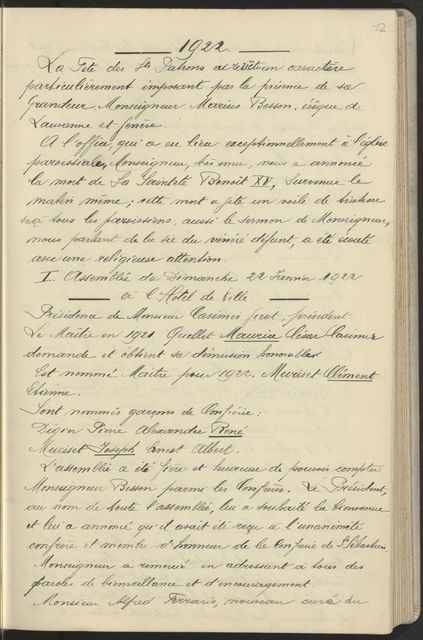 12
1922.
La Fête des Sts Patrons a revêtu un caractère
particulièrement imposant par la présence de sa
Grandeur, Monseigneur Marius Besson, évêque de
Lausanne et Genève.
A l'office, qui a eu lieu exceptionnellement à l'église
paroissiale, Monseigneur, très ému, nous a annoncé
la mort de Sa Sainteté Benoit XV, survenue le
matin même; cette mort a jeté un voile de tristesse
sur tous les paroissiens, aussi le sermon de Monseigneur,
nous parlant de la vie du vénéré défunt, a été écouté
avec une religieuse attention.
I. Assemblée du Dimanche 22 Janvier 1922
à l'Hôtel de Ville
Présidence de Monsieur Casimir président.
Le Maître en 1921 Quellet Maurice César Casimir
demande et obtient sa démission honorable
Est nommé Maître pour 1922. Muriset Clément
Etienne.
Sont nommés garçons de Confrérie:
Digier Pierre Alexandre René
Muriset Joseph Ernest Albert.
L'assemblée a été fière et heureuse de pouvoir compter
Monseigneur Besson parmi les Confrères. Le Président,
au nom de toute l'assemblée, lui a souhaité la bienvenue
et lui a annoncé qu'il avait été reçu à l'unanimité
confrère et membre d'honneur de la Confrérie de St Sébastien.
Monseigneur a remercié en adressant à tous des
paroles de bienveillance et d'encouragement.
Monsieur Alfred Ferraris, nouveau curé du